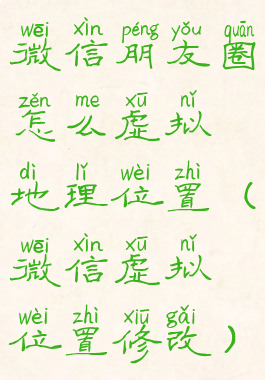 wēi xìn péng yǒu quān
微信朋友圈
zěn me xū nǐ
怎么虚拟
dì lǐ wèi zhì
地理位置（
wēi xìn xū nǐ
微信虚拟
wèi zhì xiū gǎi
位置修改）